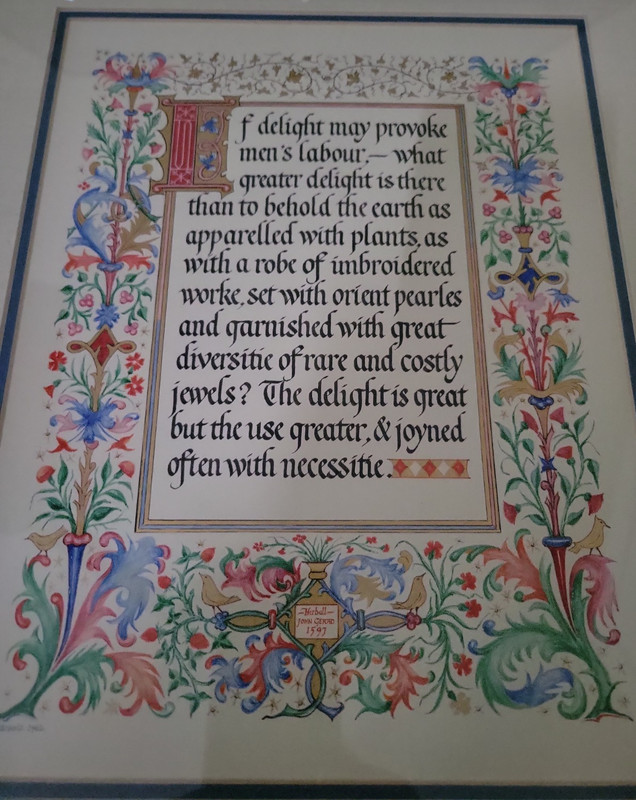 If delight may provoke
men's labour,— what
greater delight is there
than to behold the earth as
apparelled with plants, as
with a robe of imbroidered
worke, set with orient pearles
and garnished with great
diversitie of rare and costly
jewels? The delight is great
but the use greater, & joyned
often with necessitie.
—Herball—
JOHN GERARD
1597